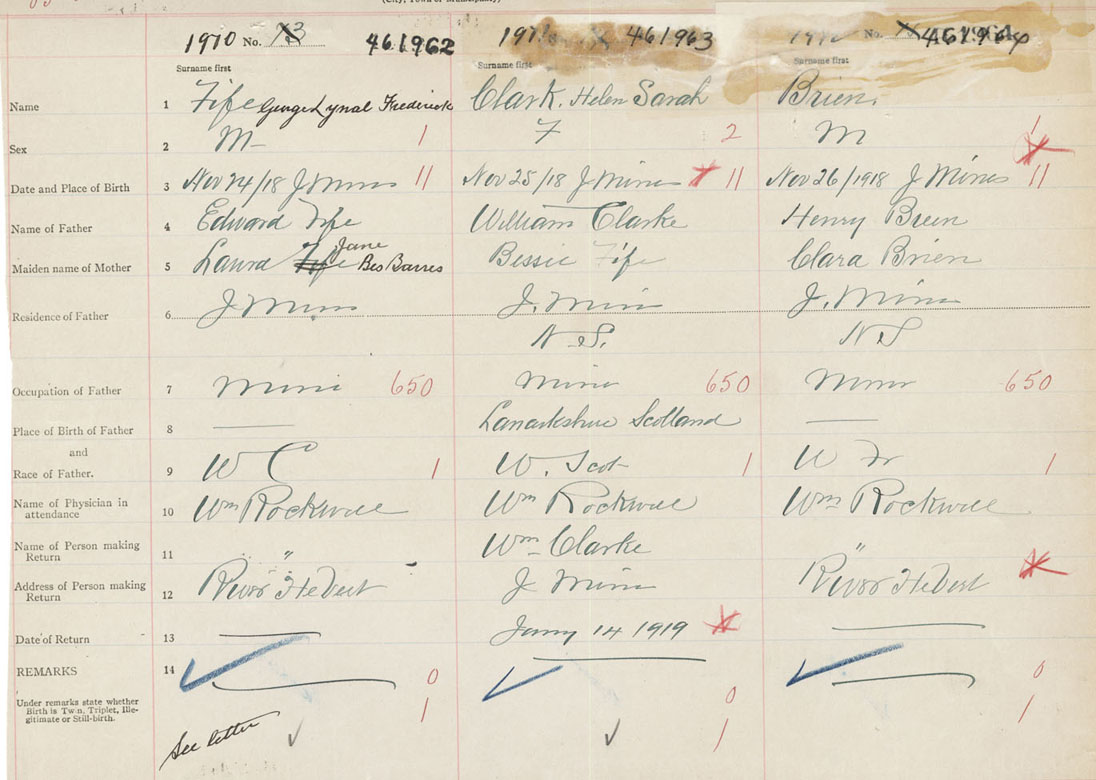 (City, Town or Municipality)
1970 No. 461962 1971 461963 No. 461964
Surname first Surname first Surname first
Name 1 Fife George Lynal Frederick Clark, Helen Sarah Brien,
Sex 2 M 1 F 2 M 1
Date and Place of Birth 3 Nov 24/18 J Mines 11 Nov 25/18 J Mines 11 Nov 26/1918 J Mines 11
Name of Father 4 Edward Fife William Clarke Henry Brien
Maiden name of Mother 5 Laura Fife Jane Des Barres Bessie Fife Clara Brien
Residence of Father 6 J Mines J. Mines J. Mines
N.S. N S
Occupation of Father 7 Miner 650 Miner 650 Miner 650
Place of Birth of Father 8 Lanarkshire Scotland
and
Race of Father. 9 W 1 W. Scot 1 W Fr 1
Name of Physician in
attendance 10 Wm Rockwell Wm Rockwell Wm Rockwell
Name of Person making
Return 11 " Wm Clarke "
Address of Person making
Return 12 River Hebert J Mines River Hebert
Date of Return 13 Jany 14 1919
REMARKS 14 0 0 0
Under remarks state whether
Birth is Twin, Triplet, Ille-
gitimate or Still-birth. 1 1 1
See letter